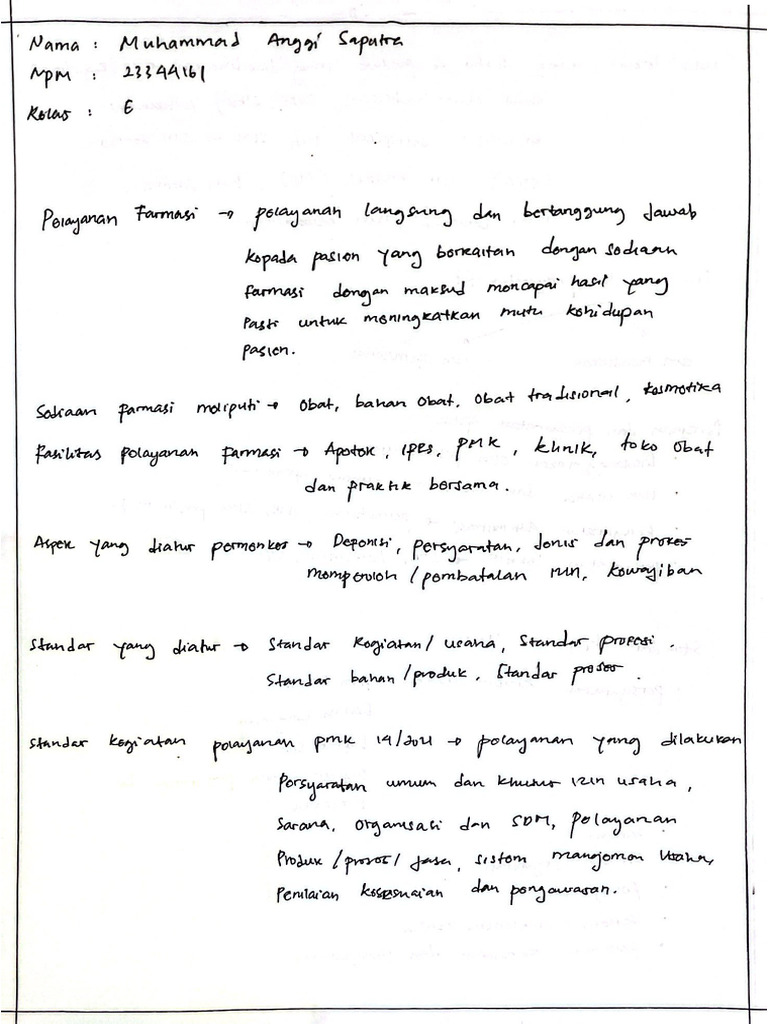 Nama : Muhammad Anggi Saputra
NPM : 23344161
Kelas : E
Pelayanan Farmasi → pelayanan langsung dan bertanggung Jawab
kepada pasien yang berkaitan dengan sediaan
farmasi dengan maksud mencapai hasil yang
Pasti untuk meningkatkan mutu kehidupan
pasien.
Sediaan farmasi meliputi → Obat, bahan Obat, Obat tradisional, kosmetika
Fasilitas pelayanan farmasi → Apotek, IPRS, PMK, klinik, toko Obat
dan praktik bersama.
Aspek yang diatur permenkes → Depenisi, persyaratan, Jenis dan proses
memperoleh/pembatalan izin, kewajiban
Standar yang diatur → Standar kegiatan/usaha, Standar profesi.
Standar bahan/produk, Standar proses.
Standar kegiatan pelayanan PMK 14/2021 → pelayanan yang dilakukan
Persyaratan umum dan khusus izin usaha,
Sarana, Organisasi dan SDM, pelayanan
Produk/proses/Jasa, sistem manajemen Usaha,
Penilaian kesesuaian dan pengawasan.